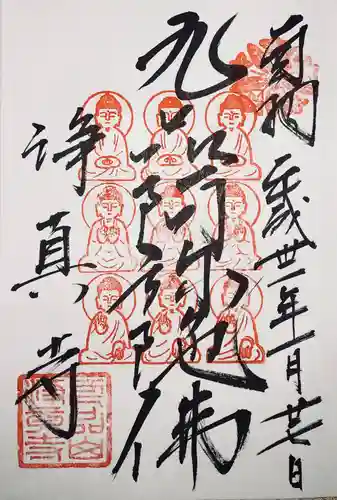 奉拝 平成卅一年一月廿七日
九品阿弥陀佛
浄真寺